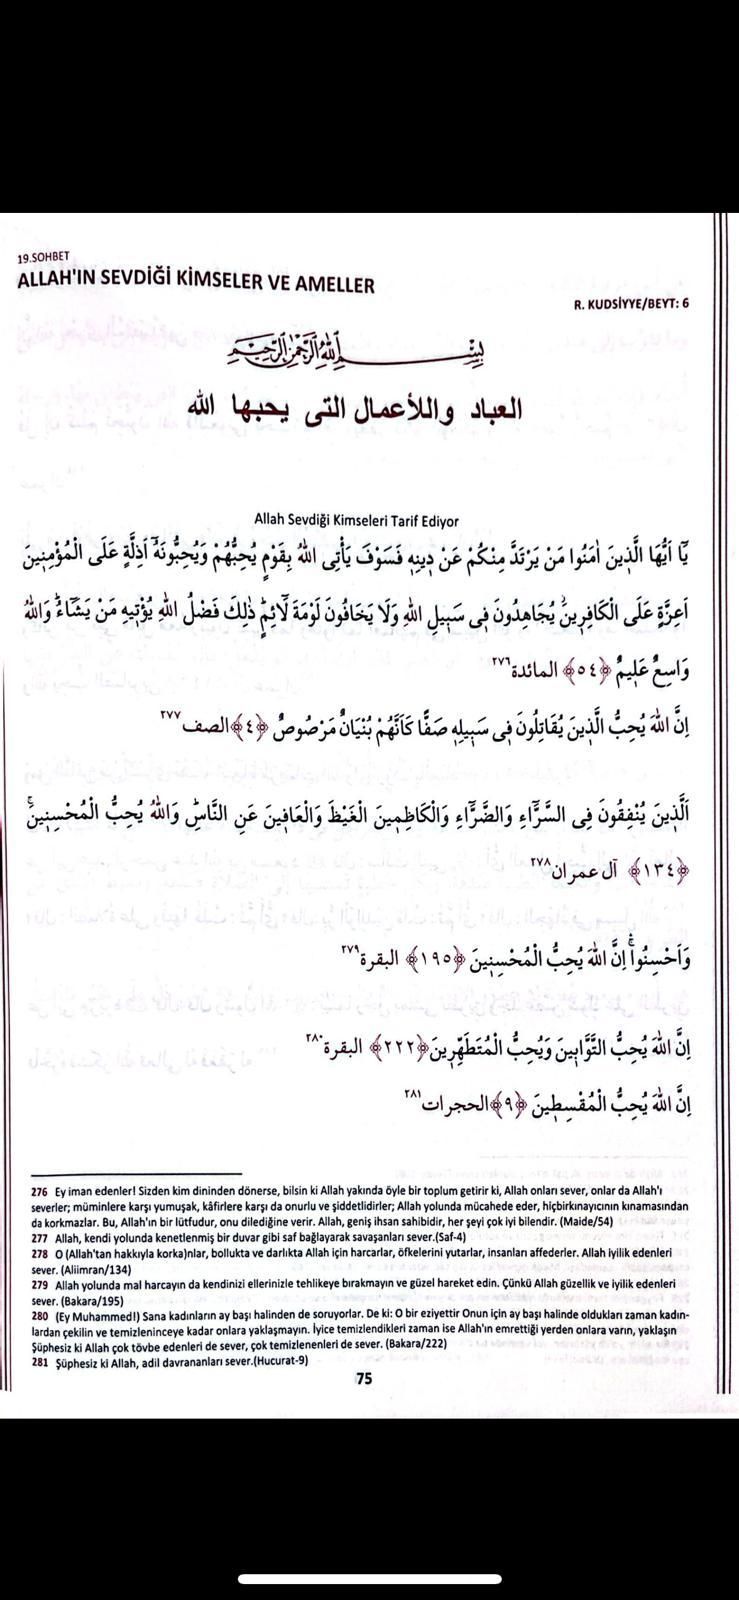 19.SOHBET
ALLAH'IN SEVDİĞİ KİMSELER VE AMELLER
R. KUDSİYYE/BEYT: 6
بِسْمِ اللهِ الرَّحْمٰنِ الرَّحِيمِ
العباد واللأعمال التى يحبها الله
Allah Sevdiği Kimseleri Tarif Ediyor
يَٓا اَيُّهَا الَّذٖينَ اٰمَنُوا مَنْ يَرْتَدَّ مِنْكُمْ عَنْ دٖينِهٖ فَسَوْفَ يَاْتِى اللهُ بِقَوْمٍ يُحِبُّهُمْ وَيُحِبُّونَهُٓ اَذِلَّةٍ عَلَى الْمُؤْمِنٖينَ
اَعِزَّةٍ عَلَى الْكَافِرٖينَۘ يُجَاهِدُونَ فٖى سَبٖيلِ اللهِ وَلَا يَخَافُونَ لَوْمَةَ لَٓائِمٍۜ ذٰلِكَ فَضْلُ اللهِ يُؤْتٖيهِ مَنْ يَشَٓاءُۜ وَاللهُ
وَاسِعٌ عَلٖيمٌ ﴿٥٤﴾ المائدة٢٧٦
اِنَّ اللهَ يُحِبُّ الَّذٖينَ يُقَاتِلُونَ فٖى سَبٖيلِهٖ صَفًّا كَاَنَّهُمْ بُنْيَانٌ مَرْصُوصٌ ﴿٤﴾الصف٢٧٧
اَلَّذٖينَ يُنْفِقُونَ فِى السَّرَّٓاءِ وَالضَّرَّٓاءِ وَالْكَاظِمٖينَ الْغَيْظَ وَالْعَافٖينَ عَنِ النَّاسِۜ وَاللهُ يُحِبُّ الْمُحْسِنٖينَۚ
﴿١٣٤﴾ آل عمران٢٧٨
وَاَحْسِنُواۚ اِنَّ اللهَ يُحِبُّ الْمُحْسِنٖينَ ﴿١٩٥﴾ البقرة٢٧٩
اِنَّ اللهَ يُحِبُّ التَّوَّابٖينَ وَيُحِبُّ الْمُتَطَهِّرٖينَ﴿٢٢٢﴾ البقرة٢٨٠
اِنَّ اللهَ يُحِبُّ الْمُقْسِطٖينَ ﴿٩﴾الحجرات٢٨١
276 Ey iman edenler! Sizden kim dininden dönerse, bilsin ki Allah yakında öyle bir toplum getirir ki, Allah onları sever, onlar da Allah'ı
severler; müminlere karşı yumuşak, kâfirlere karşı da onurlu ve şiddetlidirler; Allah yolunda mücahede eder, hiçbirkınayıcının kınamasından
da korkmazlar. Bu, Allah'ın bir lütfudur, onu dilediğine verir. Allah, geniş ihsan sahibidir, her şeyi çok iyi bilendir. (Maide/54)
277 Allah, kendi yolunda kenetlenmiş bir duvar gibi saf bağlayarak savaşanları sever.(Saf-4)
278 O (Allah'tan hakkıyla korka)nlar, bollukta ve darlıkta Allah için harcarlar, öfkelerini yutarlar, insanları affederler. Allah iyilik edenleri
sever. (Aliimran/134)
279 Allah yolunda mal harcayın da kendinizi ellerinizle tehlikeye bırakmayın ve güzel hareket edin. Çünkü Allah güzellik ve iyilik edenleri
sever. (Bakara/195)
280 (Ey Muhammed!) Sana kadınların ay başı halinden de soruyorlar. De ki: O bir eziyettir Onun için ay başı halinde oldukları zaman kadın-
lardan çekilin ve temizleninceye kadar onlara yaklaşmayın. İyice temizlendikleri zaman ise Allah'ın emrettiği yerden onlara varın, yaklaşın
Şüphesiz ki Allah çok tövbe edenleri de sever, çok temizlenenleri de sever. (Bakara/222)
281 Şüphesiz ki Allah, adil davrananları sever.(Hucurat-9)
75